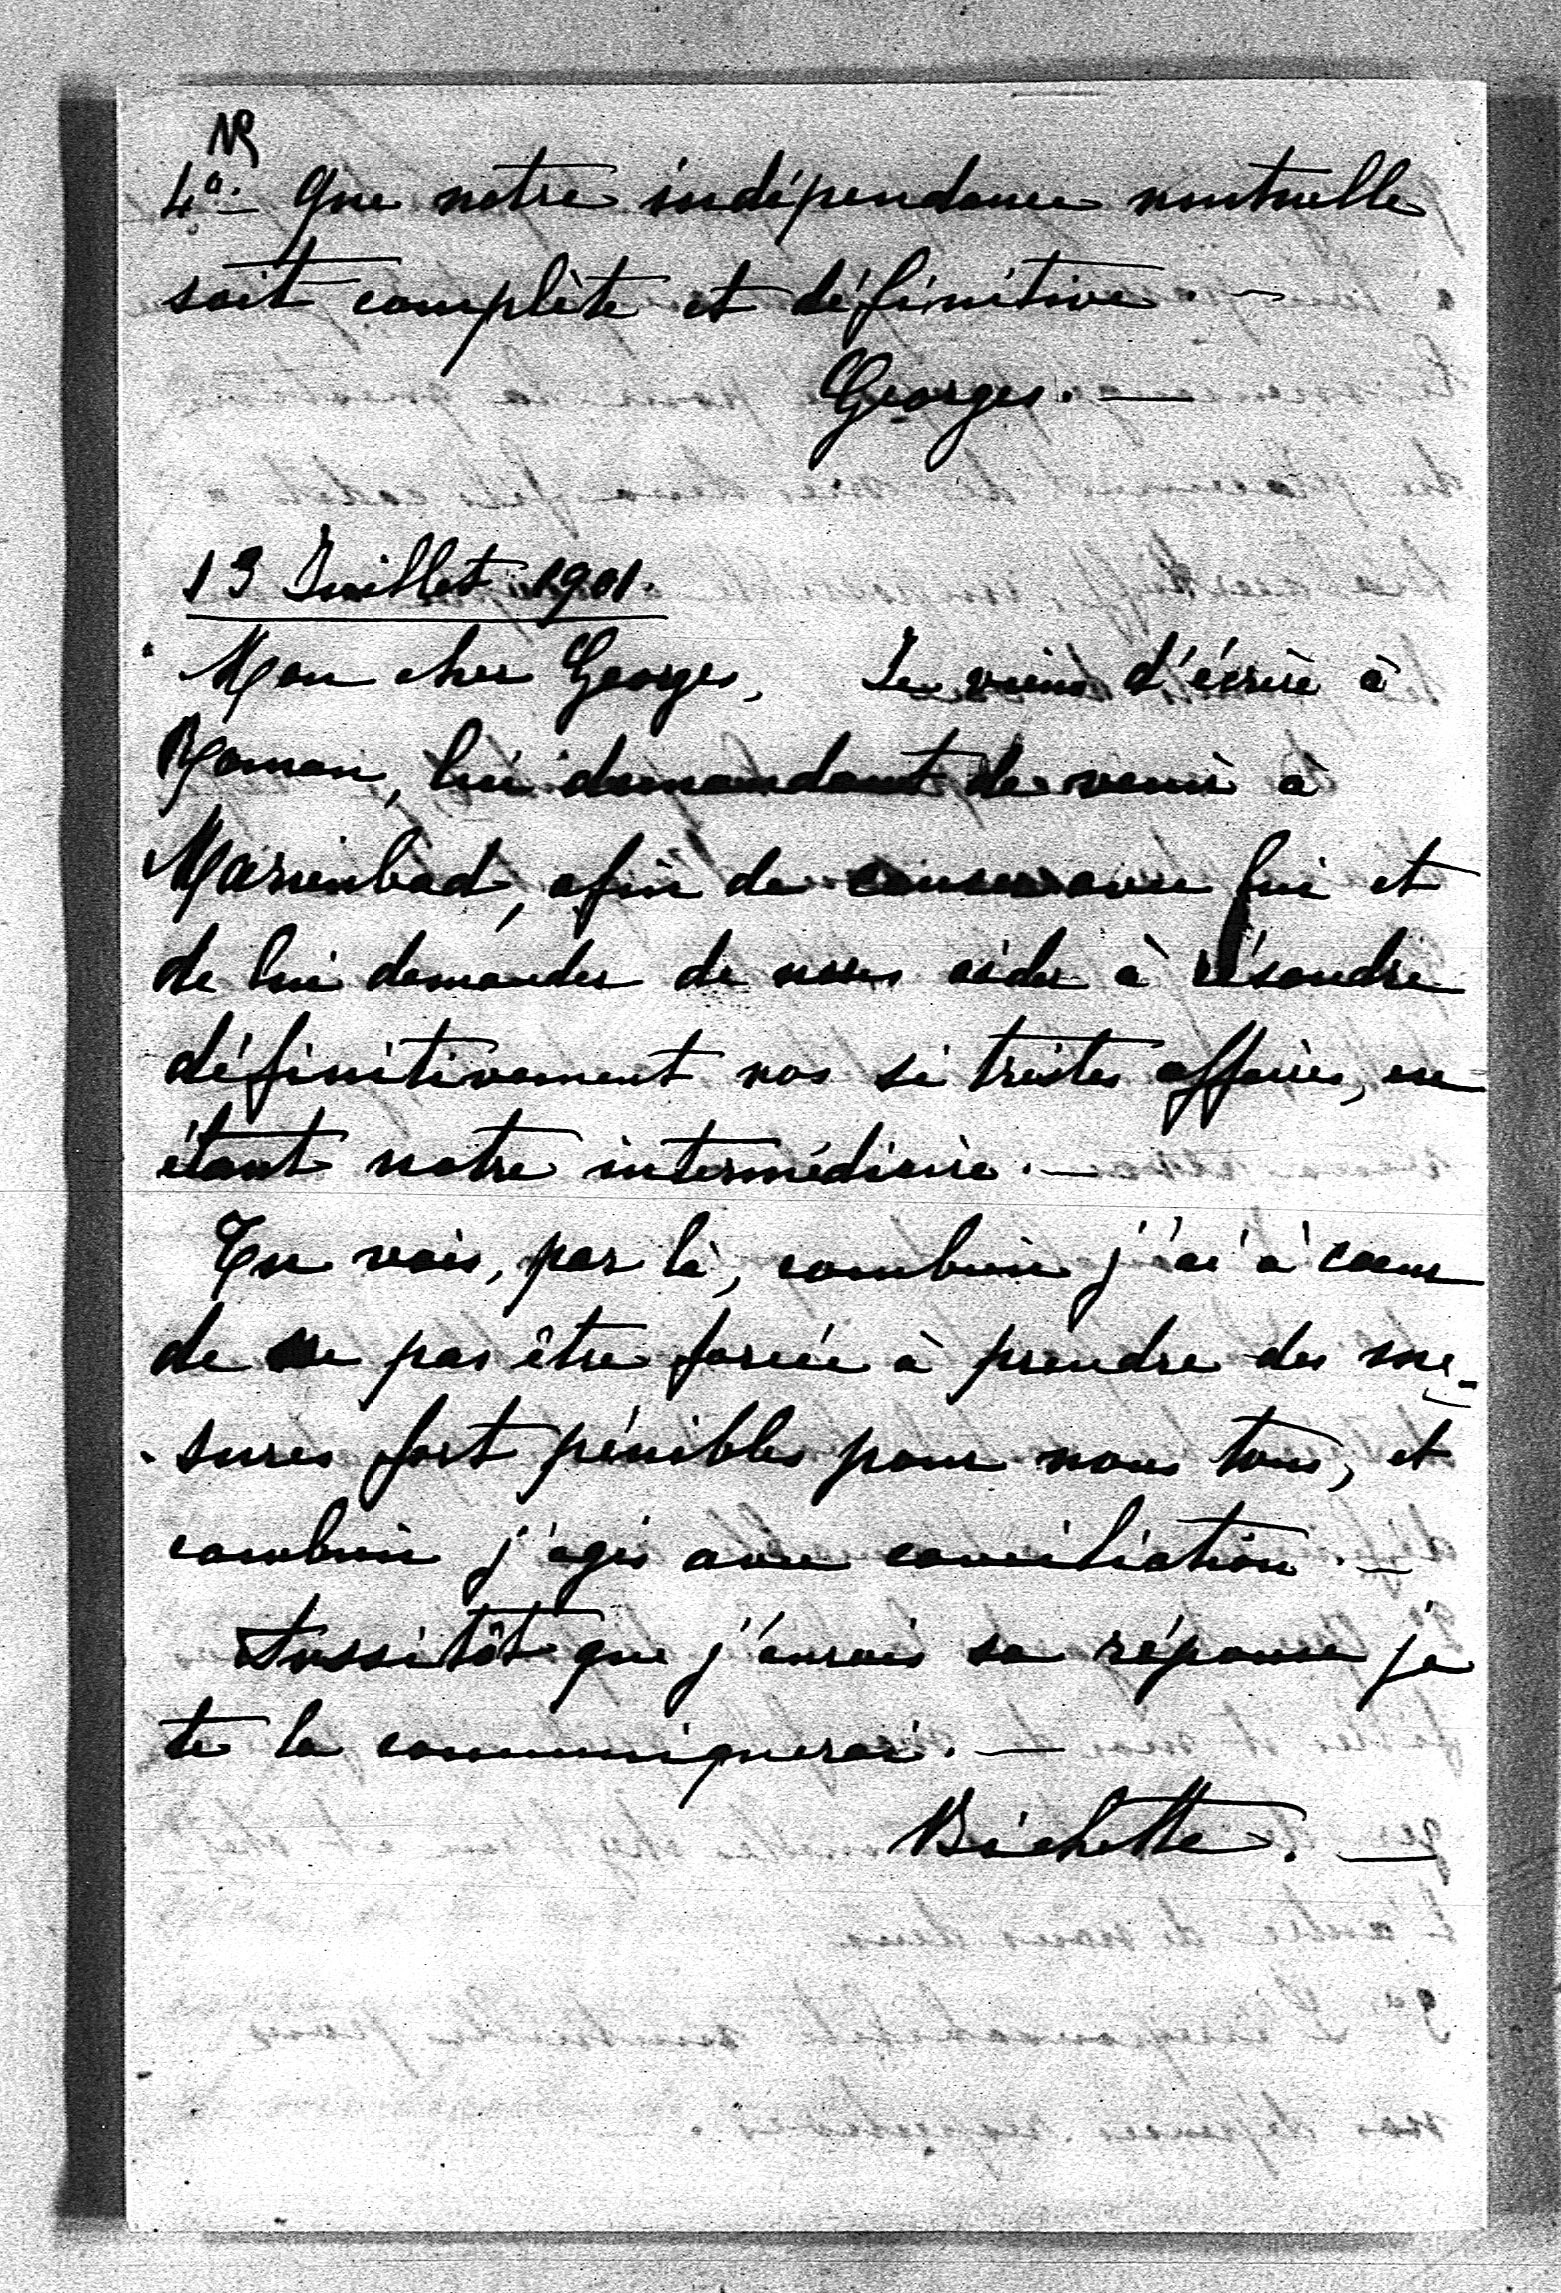 4°. Que notre indépendance mutuelle
soit complète et définitive. —
Georges. —
13 Juillet 1901.
Mon cher Georges. Je viens d'écrire à
Roman, lui demandant de venir à
Marienbad, afin de causer avec lui et
de lui demander de nous aider à résoudre
définitivement nos si tristes affaires, en
étant notre intermédiaire. —
Tu vois, par là, combien j'ai à cœur
de ne pas être forcée à prendre des me-
sures fort pénibles pour nous tous, et
combien j'agis avec conciliation. —
Aussitôt que j'aurais sa réponse je
te la communiquerai. —
Bichette. —